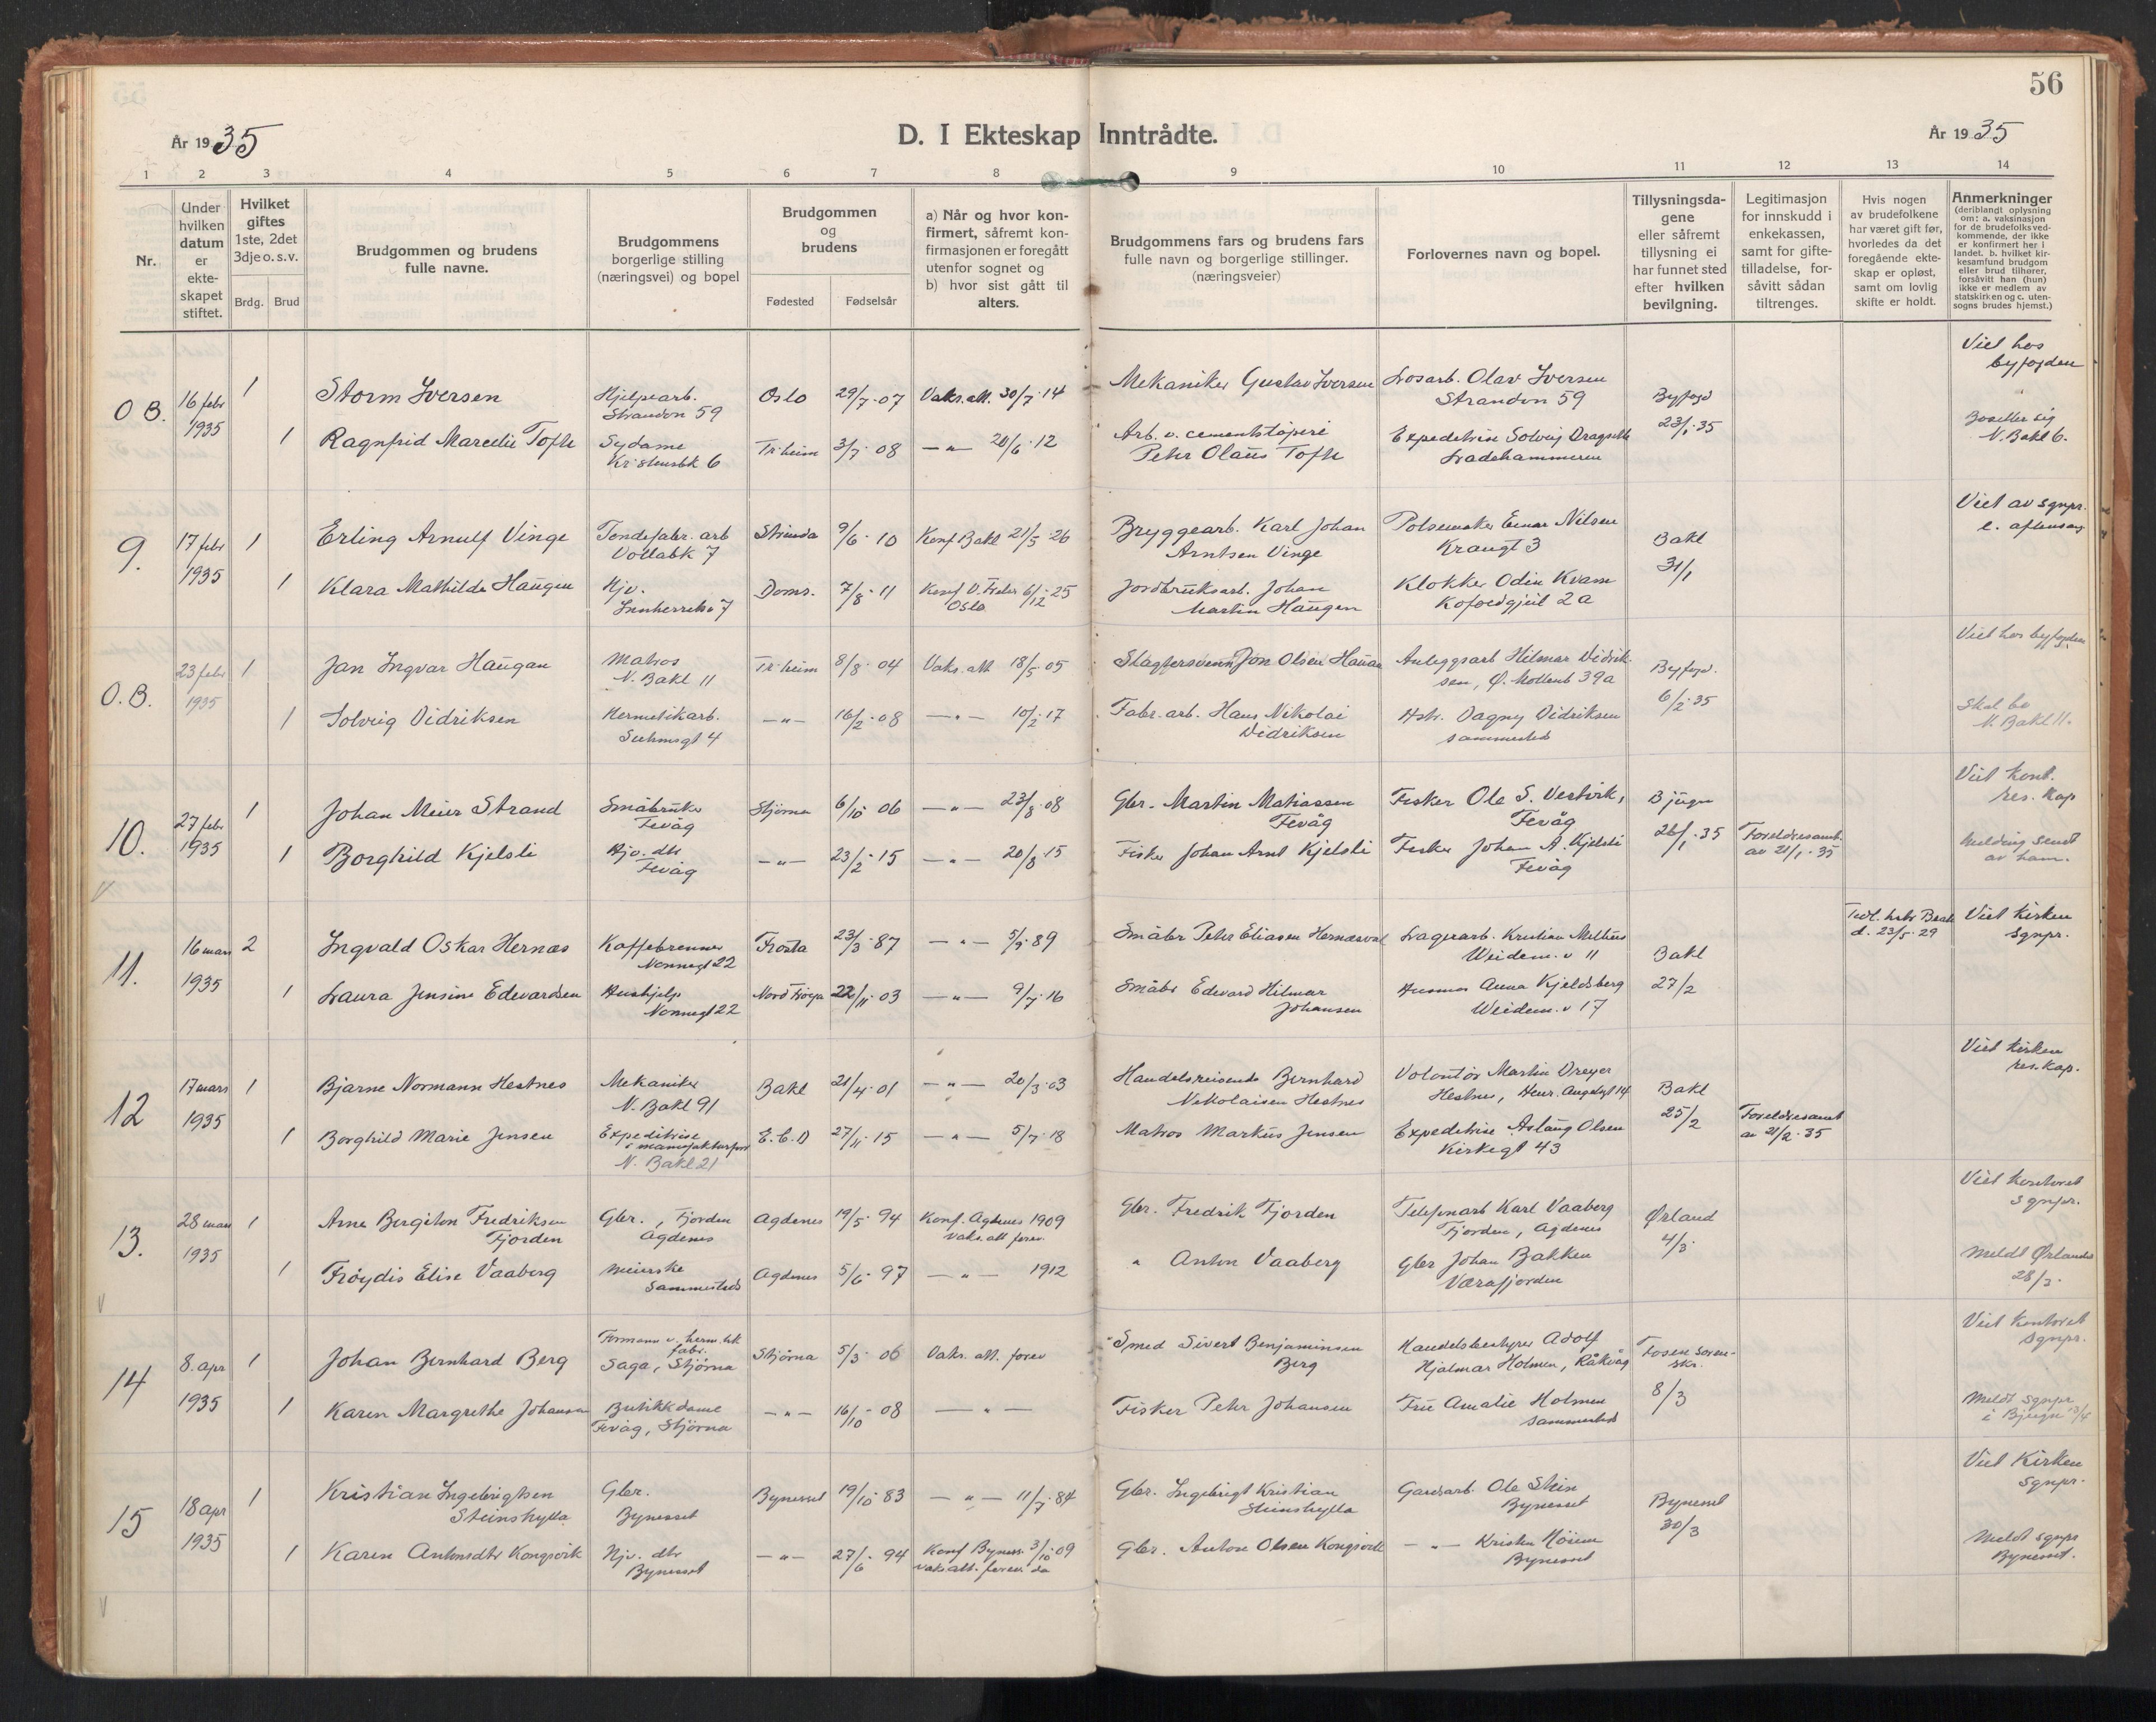 56
År 1935
D. I Ekteskap Inntrådte.
År 1935
1 2 3 4 5 6 7 8 9 10 11 12 13 14
Nr.
Under hvilken datum er ekte-skapet stiftet.
Hvilket giftes 1ste, 2det 3dje o. s. v.
Brdg. Brud
Brudgommen og brudens fulle navne.
Brudgommens borgerlige stilling (næringsvei) og bopel
Brudgommen og brudens
Fødested Fødselsår
a) Når og hvor kon-firmert, såfremt kon-firmasjonen er foregått utenfor sognet og
b) hvor sist gått til alters.
Brudgommens fars og brudens fars fulle navn og borgerlige stillinger. (næringsveier)
Forlovernes navn og bopel.
Tillysningsda-gene eller såfremt tillysning ei har funnet sted efter hvilken bevilgning.
Legitimasjon for innskudd i enkekassen, samt for gifte-tilladelse, for-såvitt sådan tiltrenges.
Hvis nogen av brudefolkene har været gift før, hvorledes da det foregående ekte-skap er opløst, samt om lovlig skifte er holdt.
Anmerkninger (deriblandt oplysning om: a. vaksinasjon for de brudefolksved-kommende, der ikke er konfirmert her i landet. b. hvilket kir-kesamfund brudgom eller brud tilhører, forsåvitt han (hun) ikke er medlem av statskirken og c. uten-sogns brudes hjemst.)
Viet hos
byfogden
O B. 16 febr 1 Storm Iversen Hjelpearb. Oslo 29/7·07 Vaks.att. 30/7·14 Mekaniker Gustav Iversen Losarb. Olav Iversen Byfogd
1935 Stranden 59 Stranden 59 23/1·35
1 Ragnfrid Marcelie Tofte Sydame Tr.heim 3/7·08 —"— 20/6·12 Arb. v. cementstøperi Expeditrise Solveig Bosetter sig
Kristensbk 6 Peter Olaus Tofte Ladehammeren N. Bakl 6.
9. 17 febr 1 Erling Arnulf Vinge Tøndefabr. arb Strinda 9/6·10 Konf Bakl 21/5·26 Bryggearb. Karl Johan Pølsemaker Einar Nilsen Bakl Viet av sgnpr.
1935 Vollabk 7 Arntsen Vinge Krangt 3 31/1 e. aftensang
1 Klara Mathilde Haugen Hjv. Doms. 7/8·11 Konf V. Frelser 6/12·25 Jordbruksarb. Johan Klokker Odin Kvam
Innherredsv 7 Oslo Martin Haugen Kofoedgjeil 2a
O.B. 23 febr 1 Jan Ingvar Haugan Matros Tr.heim 8/8·04 Vaks.att 18/5·05 Slagtersvenn Jon Olsen Anleggsarb Hilmar Didrik- Byfogd. Viet hos byfogden
1935 N. Bakl 11 sen, Ø. Møllenb 39a 6/2·35
1 Solveig Didriksen Hermetikarb. —"— 16/2·08 —"— 10/2·17 Fabr. arb. Hans Nikolai Hstr. Dagny Didriksen Skal bo
Suhmsgt 4 Didriksen sammesteds N. Bakl 11.
10. 27 febr 1 Johan Meier Strand Småbruker Stjørna 6/10 06 —"— 23/8·08 Gbr. Martin Matiassen Fisker Ole S. Vestvik, Bjugn Viet kont.
1935 Fevåg Fevåg Fevåg 26/1·35 res. kap
1 Borghild Kjelsli Hjv. dtr —"— 23/2·15 —"— 20/8·15 Fisker Johan Arnt Kjelsli Fisker Johan A. Kjelsli Foreldresamt. Melding sendt
Fevåg Fevåg av 21/1·35 av ham.
11. 16 mars 2 Ingvald Oskar Hernæs Kaffebrenner Frosta 23/3·87 —"— 5/9·89 Småbr Peter Eliasen Lagerarb. Kristian Melhus Bakl d. 23/5·29 Viet kirken
1935 Nonnegt 22 Weidem.v 11 27/2 sgnpr.
1 Laura Jensine Edvardsen Hushjelp Nord Frøya 22/11·03 —"— 9/7·16 Småbr Edvard Hilmar Husmor Anna Kjeldsberg
Nonnegt 22 Johansen Weidem.v 17
12 17 mars 1 Bjarne Normann Hestnes Mekaniker Bakl 21/4·01 —"— 20/3·03 Handelsreisende Bernhard Volontør Martin Dreyer Bakl Viet kirken
1935 N. Bakl 91 Nikolaisen Hestnes Hestnes, Henr. Angelgt 14 25/2 res. kap.
1 Borghild Marie Jensen Expeditrise E.C.D 27/11·15 —"— 5/7·18 Matros Markus Jensen Expeditrise Aslaug Olsen Foreldresamt
i manufakturforr Kirkegt 43 av 21/2·35
N. Bakl 21
13. 28 mars 1 Arne Bergiton Fredriksen Gbr., Fjorden Agdenes 19/5·94 Konf. Agdenes 1909 Gbr. Fredrik Fjorden Telefonarb Karl Vaaberg Ørland Viet kontoret
1935 Fjorden Agdenes Vaks.att forev. Fjorden, Agdenes 4/3· sgnpr.
1 Frøydis Elise Vaaberg Meierske Agdenes 5/6·97 —"— 1912 " Anton Vaaberg Gbr Johan Bakken Meldt Ørlandet
Sammesteds Værafjorden 28/3·
14 8. apr 1 Johan Bernhard Berg Formann v. herm.tik fabr. Stjørna 5/3·06 Vaks. att. forev Smed Sivert Benjaminsen Handelsbestyrer Adolf Fosen soren- Viet kontoret
1935 Saga, Stjørna Berg Hjalmar Holmen, Råkvåg skr. sgnpr.
1 Karen Margrethe Johansen Butikkdame —"— 16/10·08 —"— Fisker Peter Johansen Fru Amalie Holmen 8/3 Meldt sgnpr
Fevåg, Stjørna sammesteds i Bjugn 13/4
15 18 apr 1 Kristian Ingebrigtsen Gbr. Bynesset 19/10·83 —"— 11/7·84 Gbr. Ingebrigt Kristian Gardsarb. Ole Stein Bynesset Viet Kirken
1935 Steinshylla Bynesset Steinshylla Bynesset 30/3 sgnpr.
1 Karen Antonsdtr Kongsvik Hjv. dtr —"— 27/6·94 Konf Byness. 3/10·09 Gbr. Anton Olsen Kongsvik —"— Kristen Høiem Meldt sgnpr
Bynesset Vaks att. forev. da Bynesset Bynesset.